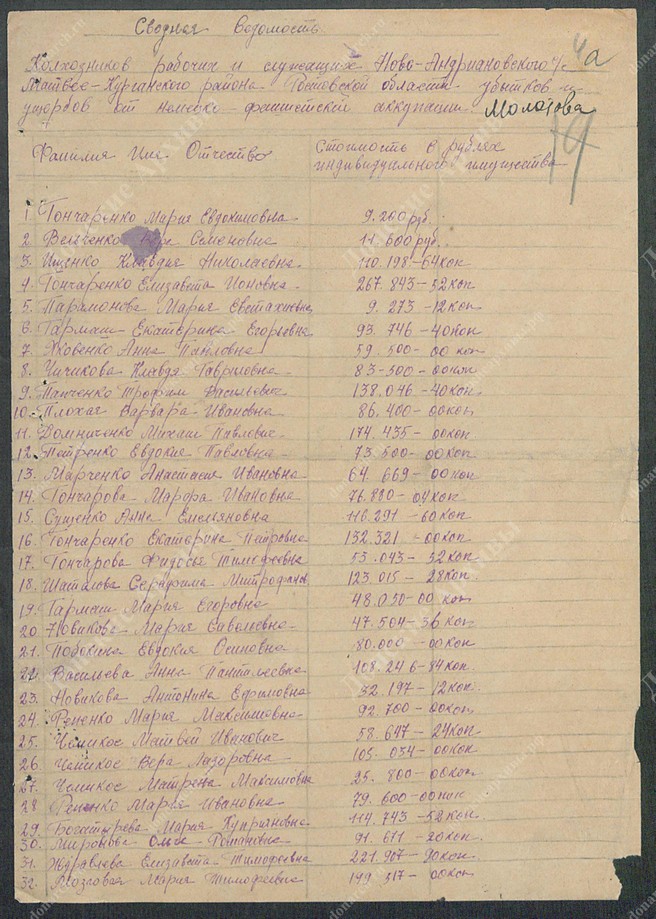 Сводная ведомость
Колхозников рабочих и служащих Ново-Андриановского с/с
Матвеево-Курганского района Ростовской области убытков и
ущербов от немецко-фашистской аккупации Молотова
4а
Фамилия Имя Отчество Стоимость в рублях
индивидуального имущества
1 Гончаренко Мария Евдокимовна 9.200 руб.
2. Семеновна 11.600 руб.
3. Ищенко Клавдия Николаевна 110.198-64 коп
4. Гончаренко Елизавета Ионовна 267.843-52 коп
5. Парамонова Мария Евстахиевна 9.273-12 коп
6. Гармаш Екатерина Егорьевна 93.746-40 коп
7. Яковенко Анна Павловна 59.500-00 коп
8. Чичикова Клавдя Гавриловна 83-500-00 коп
9. Панченко Трофим Васильевич 138.046-40 коп
10. Плохая Варвара Ивановна 86.400-00 коп
11. Домниченко Михаил Павлович 174.435-00 коп
12. Петренко Евдокия Павловна 73.500-00 коп
13. Марченко Анастасия Ивановна 64.669-00 коп
14. Гончарова Марфа Ивановна 76.880-04 коп
15. Сущенко Анна Емельяновна 116.291-60 коп
16. Гончаренко Екатерина Петровна 132.321-00 коп
17. Гончарова Федосья Тимофеевна 53.043-32 коп
18. Шаталова Серафима Митрофанов 123.015-28 коп
19. Гармаш Мария Егоровна 48.050-00 коп
20. Новикова Мария Савельевна 47.504-36 коп
21. Евдокия Осиповна 80.000-00 коп
22. Васильева Анна Панталеевна 108.246-84 коп
23. Новикова Антонина Ефимовна 32.197-12 коп
24. Репенко Мария Максимовна 92.700-00 коп
25. Чепикос Матвей Иванович 58.647-24 коп
26. Чепикос Вера Лазоровна 105.034-00 коп
27. Чепикос Матрена Максимовна 25.800-00 коп
28 Репенко Мария Ивановна 79.600-00 коп
29. Богатырева Мария Куприяновна 114.743-52 коп
30. Миронова Ольга Романовна 91.671-20 коп
31. Журавлева Елизавета Тимофеевна 221.907-90 коп
32. Мозговая Мария Тимофеевна 199.317-00 коп